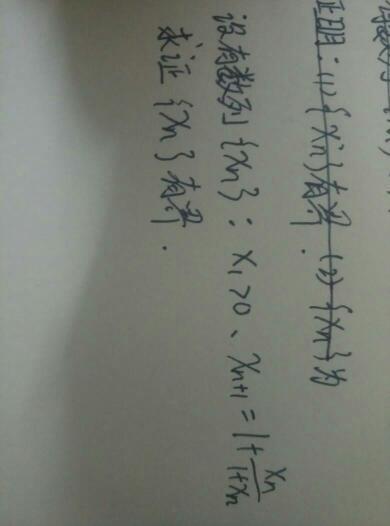 证明:(1){Xn}有界 (2){Xn}为
设有数列{Xn}:X₁>0、Xn+1=1+Xn/(1+Xn)
求证{Xn}有界.